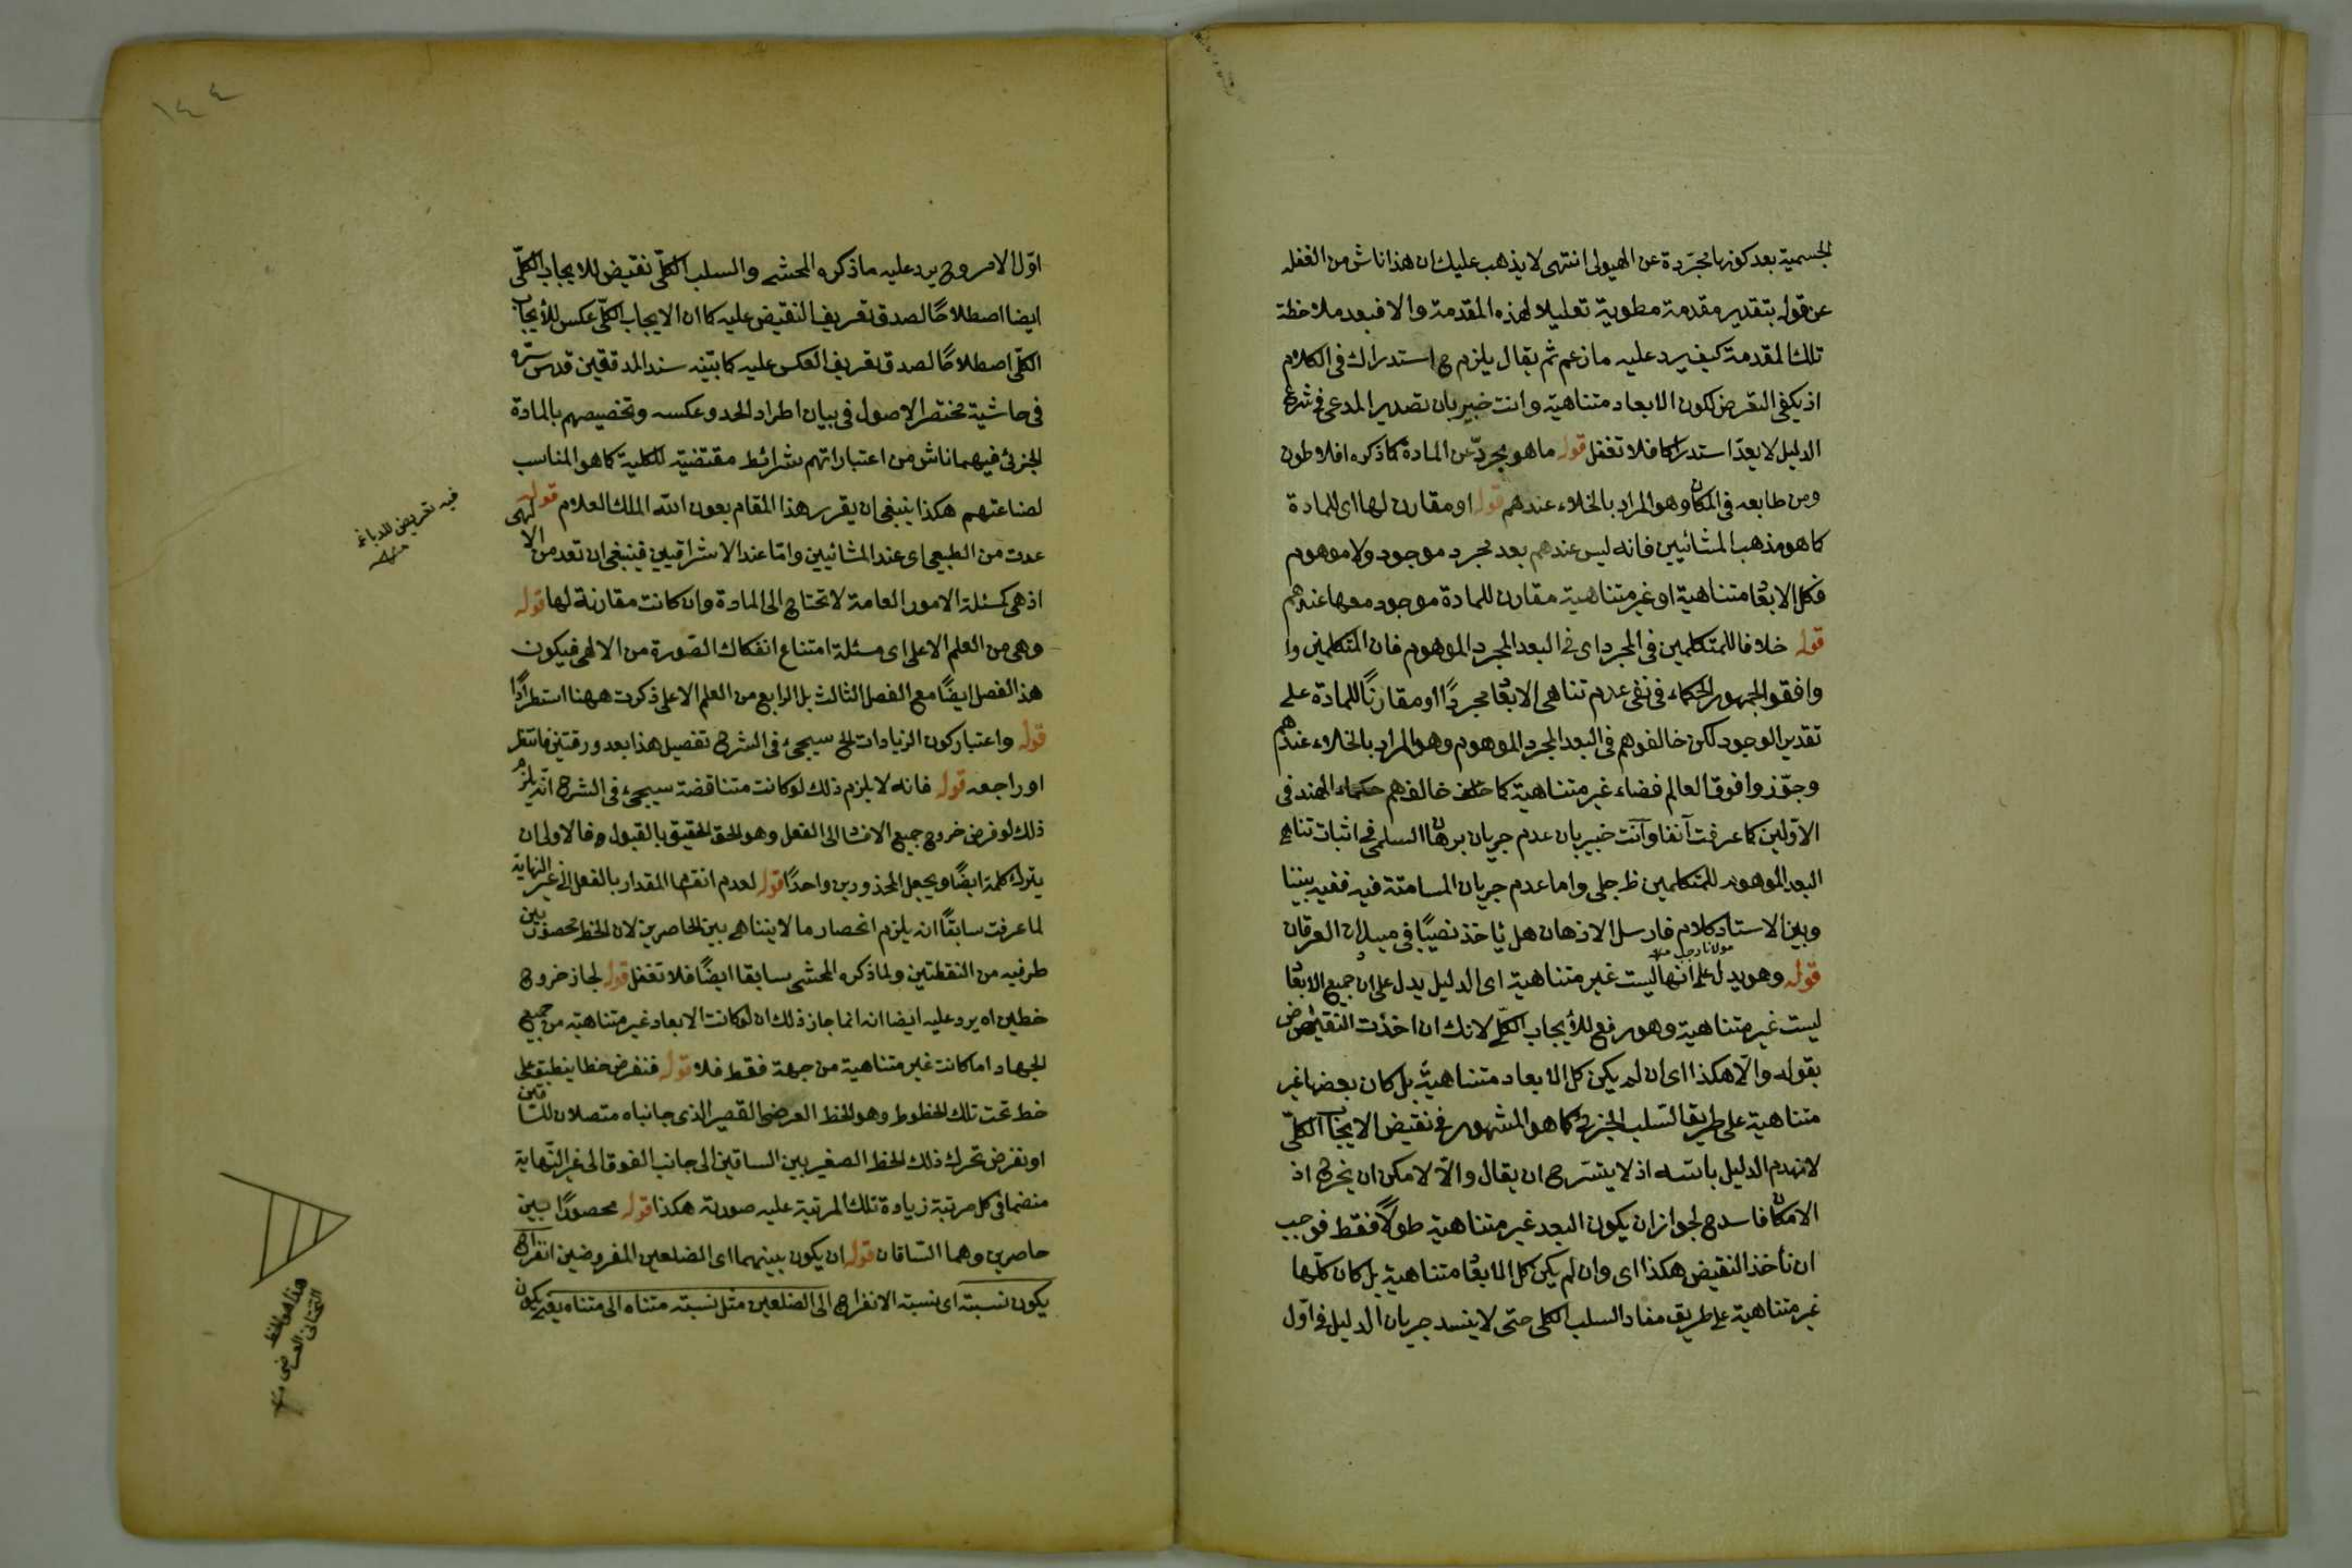 الجسمية بعد كونها مجرّدة عن الهيولى انتهى لا يذهب عليك ان هذا ناش من الغفلة
عن قوله بتقدير مقدمة مطوية تعليلا لهذه المقدمة والا فبعد ملاحظة
تلك المقدمة كيف يرد عليه ما زعم ثم يقال يلزم ح استدراك فى الكلام
اذ يكفى التعرض لكون الابعاد متناهية وانت خبير بان تصدير المدعى فى شرع
الدليل لا يعدّ استدراكا فلا تغفل قوله ما هو مجردّ عن المادة كما ذكره افلاطون
ومن طابعه فى المكان وهو المراد بالخلاء عندهم قوله او مقارن لها اى للمادة
كما هو مذهب المشائيين فانه ليس عندهم بعد مجرد موجود ولا موهوم
فكل الابعاد متناهية او غير متناهية مقارن للمادة موجود معها عندهم
قوله خلافا للمتكلمين فى المجرد اى فى البعد المجرد الموهوم فان المتكلمين وا
وافقوا لجمهور الحكماء فى نفى عدم تناهى الابعاد مجردًا او مقارنًا للمادة على
تقدير الوجود لكن خالفوهم فى البعد المجرد الموهوم وهو المراد بالخلاء عندهم
وجوّزوا فوق العالم فضاء غير متناهية كما خالفهم حكماء الهند فى
الاوّلين كما عرفت آنفا وأنت خبير بان عدم جريان برهان السلمى فى اثبات تناهى
البعد الموهوم للمتكلمين ظ جلى واما عدم جريان المسامتة فيه ففيه بيننا
وبين الاستاد كلام فارسل الاذهان هل يأخذ نصيبًا فى ميدان العرفان
مولانا رجب منه
قوله وهو يدل على انها ليست غير متناهية اى الدليل يدل على ان جميع الابعاد
ليست غير متناهية وهو رفع للأيجاب الكلّى لانك ان اخذت النقيض
بقوله والّا هكذا اى ان لم يكن كل الابعاد متناهية بل كان بعضها غير
متناهية على طريق السّلب الجزئى كما هو المشهور فى نقيض الايجاب الكلّى
لانهدم الدليل باسّه اذ لا يتسّر ح ان يقال والّا لامكن ان يخرج اذ
الامكان فاسد ح لجواز ان يكون البعد غير متناهية طولًا فقط فوجب
ان نأخذ النقيض هكذا اى وان لم يكن كل الابعاد متناهية بل كان كلّها
غير متناهية على طريق مفاد السلب الكلى حتى لا ينسد جريان الدليل فى اوّل
١٤٤
اوّل الامر وح يرد عليه ما ذكره المحشى والسلب الكلّى نقيض للايجاب الكلّى
ايضا اصطلاحًا لصدق تعريف النقيض عليه كما ان الايجاب الكلّى عكس للأيجاب
الكلّى اصطلاحًا لصدق تعريف العكس عليه كما بيّنه سند المدققين قدس سرّه
فى حاشية مختصر الاصول فى بيان اطراد الحد وعكسه وتخصيصهم بالمادة
الجزئى فيهما ناش من اعتباراتهم شرائط مقتضية للكلية كما هو المناسب
لصناعتهم هكذا ينبغى ان يقرر هذا المقام بعون الله الملك العلام قوله
عدت من الطبيعى اى عند المشائيين وامّا عند الاشراقيين فينبغى ان تعد من الالهى
اذ هى كمسئلة الامور العامة لا تحتاج الى المادة وان كانت مقارنة لها قوله
وهى من العلم الاعلى اى مسئلة امتناع انفكاك الصّورة من الالهى فيكون
هذ الفصل ايضًا مع الفصل الثالث بل الرابع من العلم الاعلى ذكرت ههنا استطرادًا
قوله واعتبار كون الزيادات الخ سيجىء فى الشرح تفصيل هذا بعد ورقتين فانتظر
او راجعه قوله فانه لا يلزم ذلك لو كانت متناقضة سيجىء فى الشرح انّه يلزم
ذلك لو فرض خروج جميع الاقسام الى الفعل وهو الحق الحقيق بالقبول وفالاولى ان
يترك كلمة ايضًا ويجعل المحذورين واحدًا قوله لعدم انقسام المقدار بالفعل الى غير النهاية
لما عرفت سابقًا انه يلزم انحصار ما لا يتناهى بين الحاصرين لان الخط محصور بين
طرفيه من النقطتين ولما ذكره المحشى سابقا ايضًا فلا تغفل قوله لجاز خروج
خطين اه يرد عليه ايضا انه انما جاز ذلك ان لو كانت الابعاد غير متناهية من جميع
الجهات اما كانت غير متناهية من جهة فقط فلا قوله فنفرض خطا ينطبق على
خط تحت تلك الخطوط وهو الخط العرضى القصير الذى جانباه متصلان للساقين
او نفرض تحرك ذلك الخط الصغير بين الساقين الى جانب الفوق الى غير النّهاية
منضما فى كل مرتبة زيادة تلك المرتبة عليه صورته هكذا قوله محصورًا بين
حاصرين وهما السّاقان قوله ان يكون بينهما اى الضلعين المفروضين انفراج
يكون نسبته اى نسبة الانفراج الى الضلعين مثل نسبة متناه الى متناه يعنى يكون
فيه تعريض للدباغى
منه
هذا هو الخط
التحتانى العرضى منه